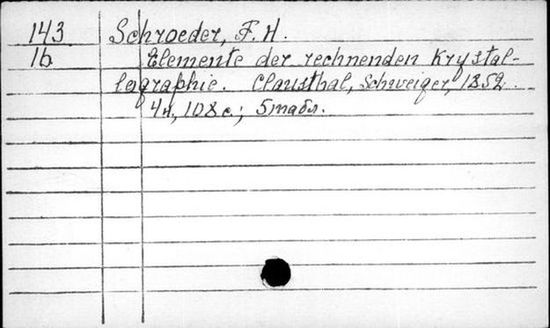 143 Schroeder, F. H.
16 Elemente der rechnenden Krystal-
lographie. Clausthal, Schweiger, 1852.
4н, 108 с.; 5табл.